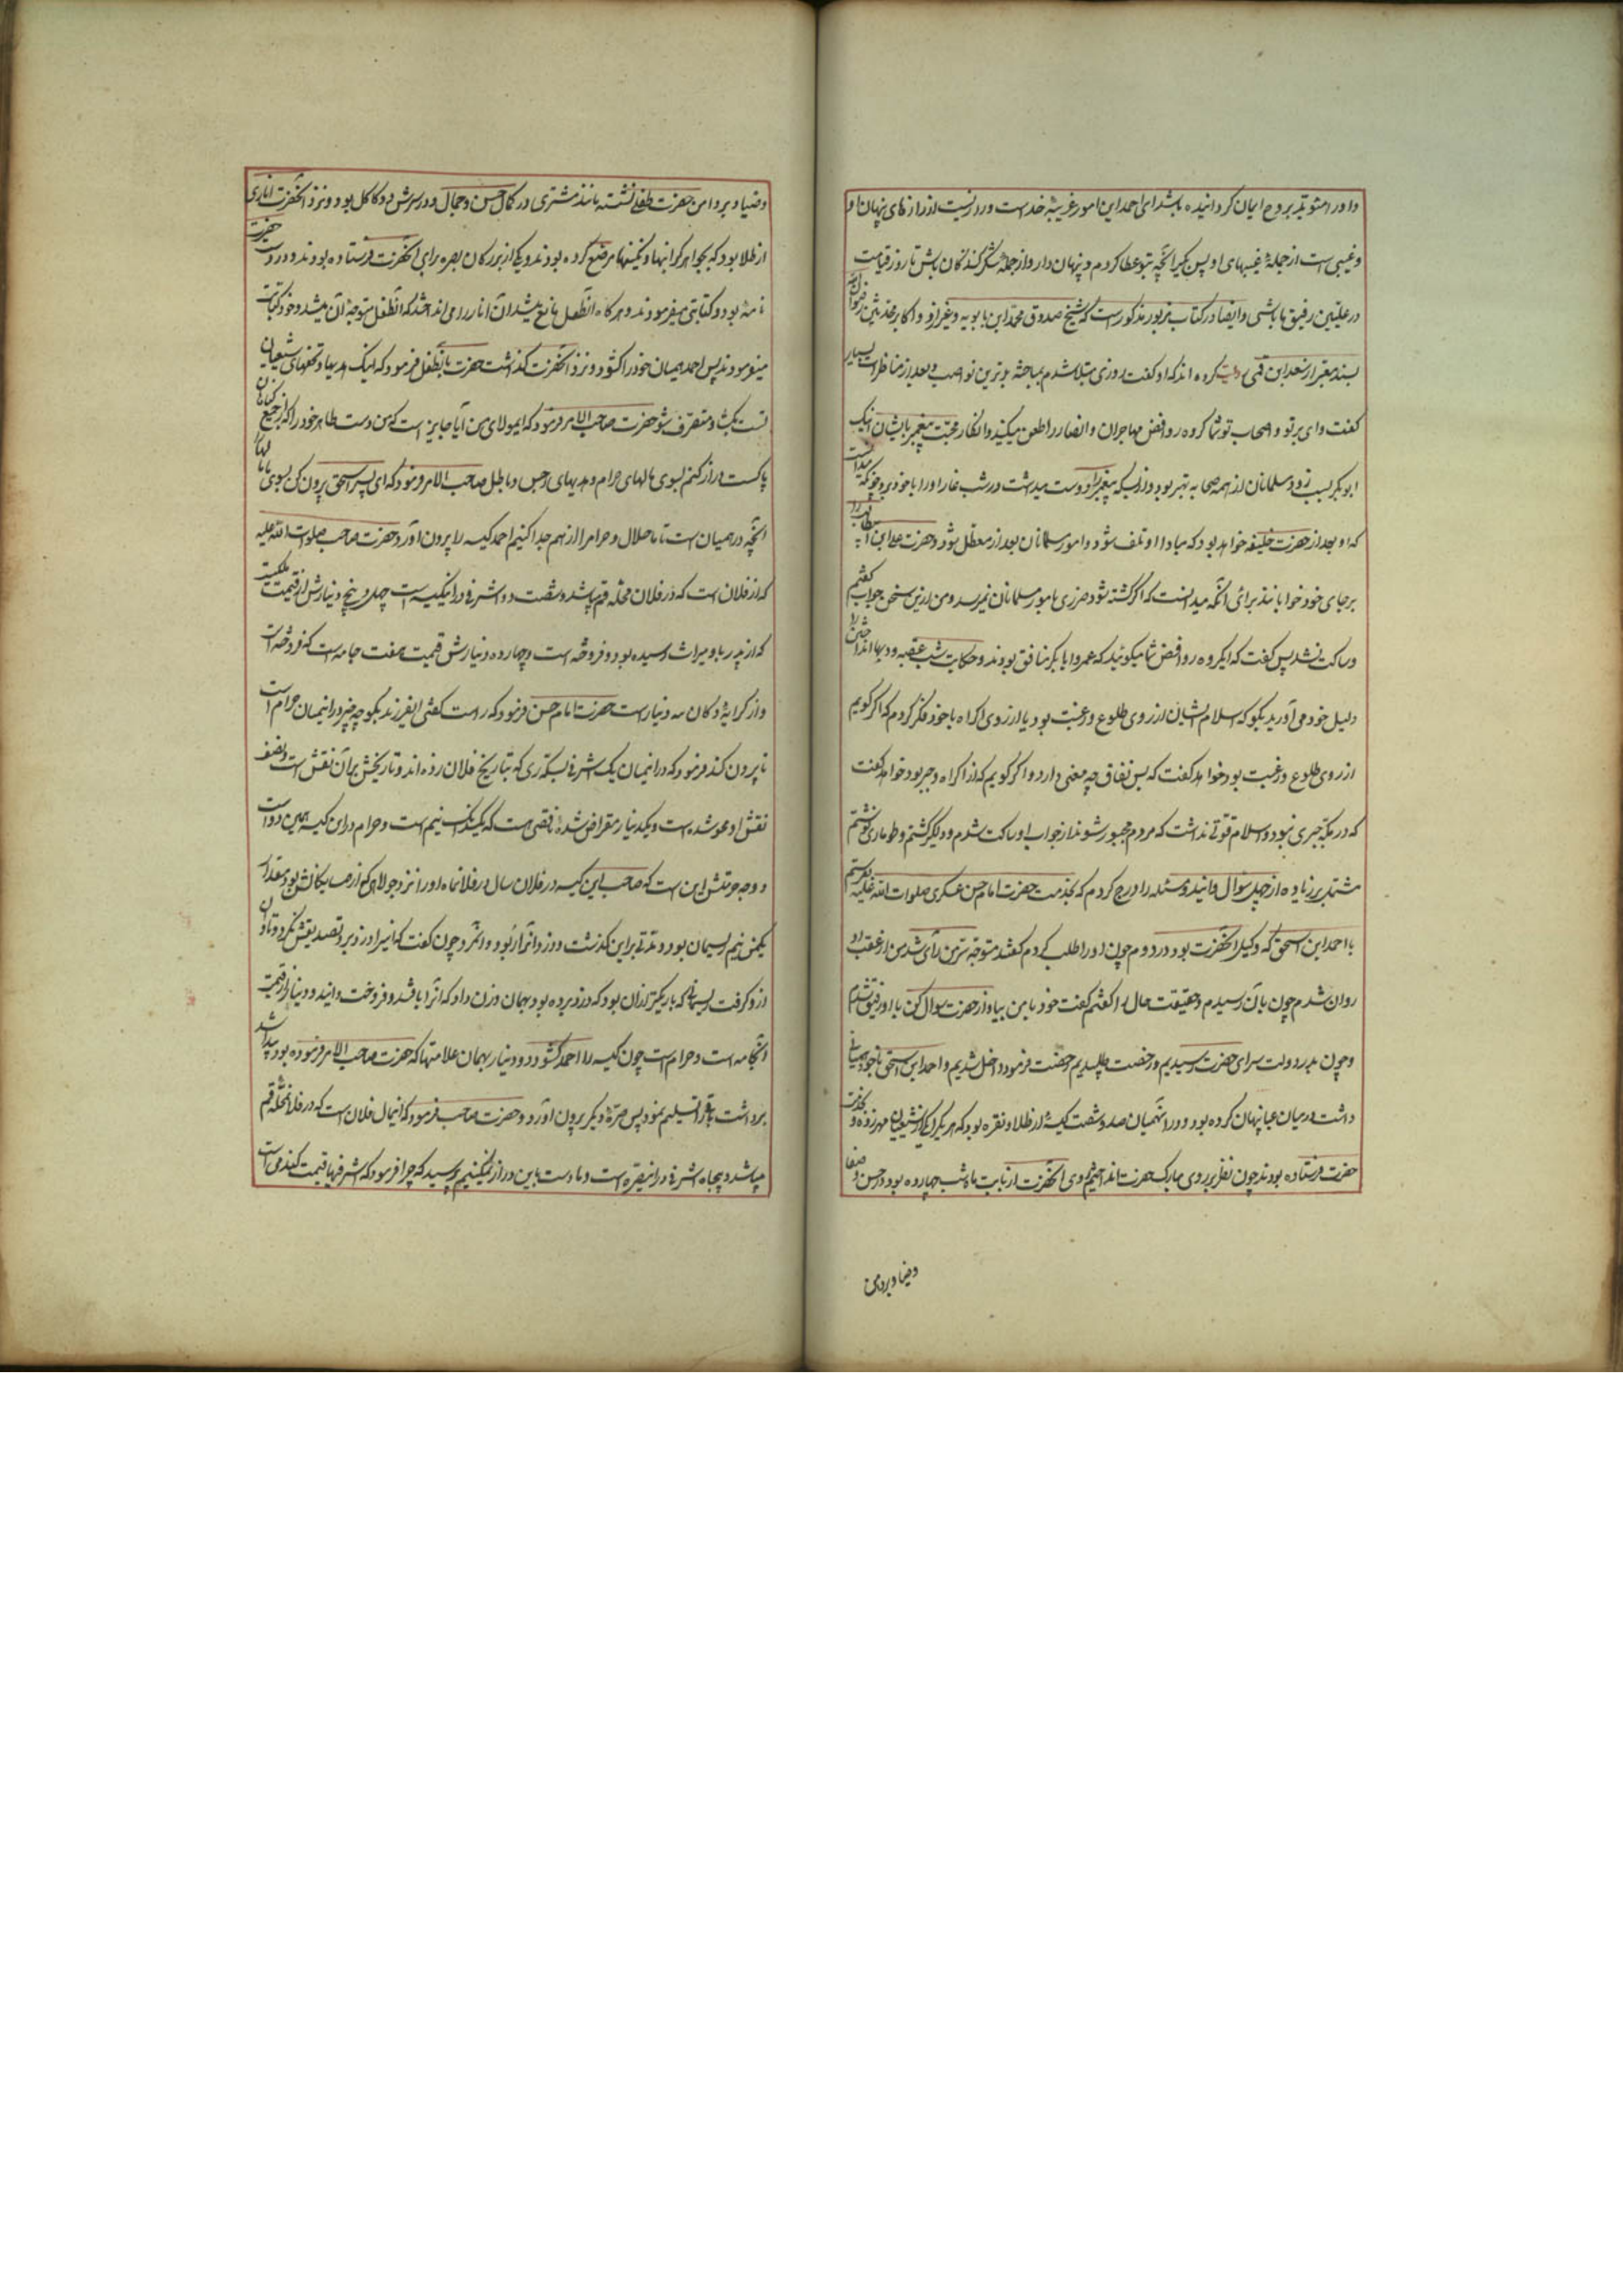 و او را مؤید بروح ایمان کردانیده باشد ای احمد این امور غریبهٔ خداست و رازیست از رازهای پنهان او
و غیبی است از جملهٔ غیبهای او پس بکیر آنچه بتو عطا کردم و پنهان دار و از جملهٔ شکر کنندکان باش تا روز قیامت
در علیین رفیق ما باشی و ایضا در کتاب مزبور مذکور است که شیخ صدوق محمد ابن بابویه و غیر او و اکابر محدثین رضوان الله
بسند معتبر از سعد ابن قمی روایت کرده اند که او کفت روزی مبتلا شدم بمباحثهٔ بدترین نواصب و بعد از مناظرات بسیار
کفت وای بر تو و اصحاب تو شما کروه روافض مهاجران و انصار را طعن میکنید و انکار محبت پیغمبر بایشان اینک
ابو بکر بسبب زود مسلمانان از همه صحابه بهتر بود و از بسکه پیغمبر او را دوست میداشت در شب غار او را با خود برد چونکه میدانست
که او بعد از حضرت خلیفه خواهد بود که مبادا او تلف شود و امور مسلمانان بعد از معطل شود و حضرت علی ابن ابیطالب را
بر جای خود خوابانید برای آنکه میدانست که اکر کشته شود ضرری بامور مسلمانان نمیرسد و من ازین سخن جواب کفتم
و ساکت نشد پس کفت که ایکروه روافض شما میکوئید که عمر و ابا بکر منافق بودند و حکایت شب عقبه و دبها انداختن را
دلیل خود می آورید بکو که اسلام ایشان از روی طلوع و رغبت بود یا از روی اکراه با خود فکر کردم که اکر کویم
از روی طلوع و رغبت بود خواهد کفت که پس نفاق چه معنی دارد و اکر کویم که از اکراه و جبر بود خواهد کفت
که در مکه جبری نبود و اسلام قوتی نداشت که مردم مجبور شوند از جواب او ساکت شدم و دلگیر کشتم و طوماری نوشتم
مشتمل بر زیاده از چهل سؤال و اینند و مسئله را درج کردم که بخدمت حضرت امام حسن عسکری صلوات الله علیه بفرستم
با احمد ابن اسحق که وکیل آنحضرت بود در قم چون او را طلب کردم کفتند متوجه سرّ من رأی شد من از عقب او
روان شدم چون باآن رسیدم و حقیقت حال را کفتم کفت خود با من بیا و از حضرت سوال کن با او رفیق شدم
و چون بدر دولت سرای حضرت رسیدیم و رخصت طلبیدیم رخصت فرمود داخل شدیم و احمد ابن اسحق با خود همیانی
داشت در میان عبا پنهان کرده بود و در آنهمیان صد و شصت کیسهٔ از طلا و نقره بود که هر یک را یکی از شیعیان مهر زده و بخدمت
حضرت فرستاده بودند چون نظر بر روی مبارک حضرت انداختیم روی آنحضرت از بابت ماه شب چهارده بود در حسن و صفا
و ضیاء و بر دامن
و ضیاء و بر دامن حضرت طفلی نشسته مانند مشتری در کمال حسن و جمال و در سرش دو کاکل بود و نزد آنحضرت اناری
از طلا بود که بجواهر کرانبها و نکینها مرصع کرده بودند و یکی از بزرکان بصره برای آنحضرت فرستاده بودند و در دست حضرت
نامهٔ بود و کتابتی میفرمودند و هر کاه آنطفل مانع میشد آن انار را می انداختند که آنطفل متوجه آن میشد و خود کتابت
میفرمودند پس احمد همیان خود را کشود و نزد آنحضرت کذاشت حضرت بآنطفل فرمود که اینک هدیها و تحفهای شیعیان
تست بکشا و متصرف شو حضرت صاحب الامر فرمود که ایمولای من آیا جایز است که من دست طاهر خود را که از جمیع کناهان
پاکست دراز کنم بسوی مالهای حرام و هدیهای رجس و باطل صاحب الامر فرمود که ای پسر اسحق بیرون کن بسوی ما
آنچه در همیان است تا ما حلال و حرام را از هم جدا کنیم احمد کیسه را بیرون آورد حضرت صاحب صلوات الله علیه
که از فلان است که در فلان محله قم میباشد و شصت و دو اشرفی در اینکیسه است چهل و پنج دینارش از قیمت ملکیست
که از پدر باو میراث رسیده بود و فروخته است و چهارده دینارش قیمت هفت جامه است که فروخته است
و از کرایهٔ دکان سه دینار است حضرت امام حسن فرمود که راست کفتی ایفرزند بکو چه چیز در انمیان حرام است
تا بیرون کند فرمود که در انمیان یک اشرفی بسکه ری که بتاریخ فلان زده اند و تاریخش بر آن نقش است و نصف
نقش او محو شده است و یکدینار مقراض شدهٔ ناقصی هست که یکدانک و نیم است و حرام در این کیسه همین دو است
و وجه حرمتش این است که صاحب این کیسه در فلان سال در فلانماه او را نزد جولاهی که از همسایکانش بود مقدار
یکمن و نیم ریسمان بود و مدتی بر این کذشت و دزد آنرا ربود و آنمرد چون کفت که آنرا دزد برد تصدیقش نکرد و تاوان
ازو کرفت ریسمانی که باریکتر از آن بود که دزد برده بود بهمان وزن داد که آنرا بافتند و فروخت و ایندو دینار از قیمت
آنجامه است و حرام است چون کیسه را احمد کشود دو دینار بهمان علامتها که حضرت صاحب الامر فرموده بود پیدا شد
برداشت باقی را تسلیم نمود پس صرهٔ دیکر بیرون آورد و حضرت صاحب فرمود که اینمال فلان است که در فلان محله قم
میباشد و پنجاه اشرفی در اینصره است و ما دست باین دراز نمیکنیم پرسید که چرا فرمود که اشرفیها قیمت کندمی است